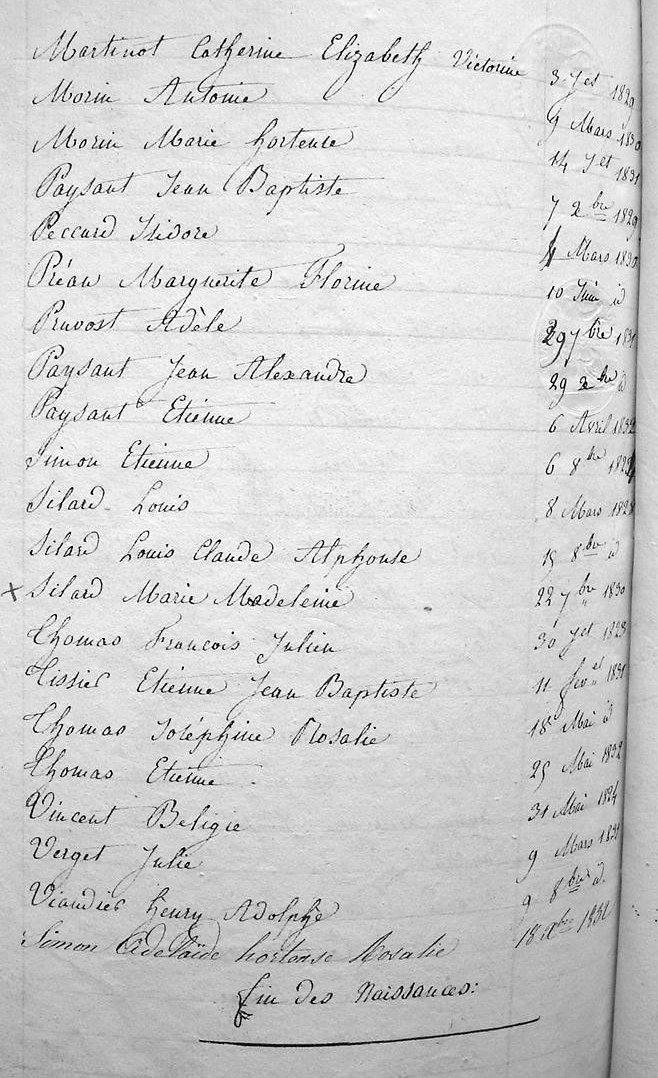 Martinot Catherine Elizabeth Victorine 3 Jet 1829
Morin Antoine 9 Mars 1830
Morin Marie hortense 14 Jet 1831
Paysant Jean Baptiste 7 xbre 1829
Peccard Isidore 4 Mars 1830
Préau Marguerite Florine 10 Juin id
Pruvost Adèle 29 7bre 1831
Paysant Jean Alexandre 29 xbre id
Paysant Etienne 6 Avril 1832
Simon Etienne 6 8bre
Silard Louis 8 Mars 1828
Silard Louis Claude Alphonse 15 8bre id
x Silard Marie Madeleine 22 7bre 1830
Thomas François Julien 30 Jet 1823
Tissier Etienne Jean Baptiste 11 1831
Thomas Joséphine Rosalie 18 Mai id
Thomas Etienne 25 Mai 1832
Vincent Beligie 31 Mai 1824
Verget Julie 9 Mars 1831
Viandier henry Adolphe 9 8bre id.
Simon Adelaïde hortense Rosalie 18 xbre 1832
fin des Naissances: